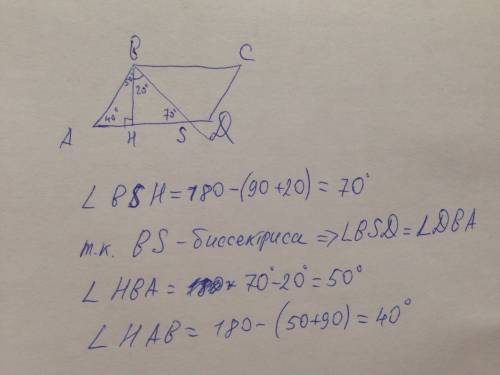 B C
50° 20°
40° 70°
A H S D
∠ BSH = 180 - (90 + 20) = 70°
т.к. BS - биссектриса => ∠BSD = ∠DBA
∠ HBA = 70° - 20° = 50°
∠ HAB = 180 - (50 + 90) = 40°